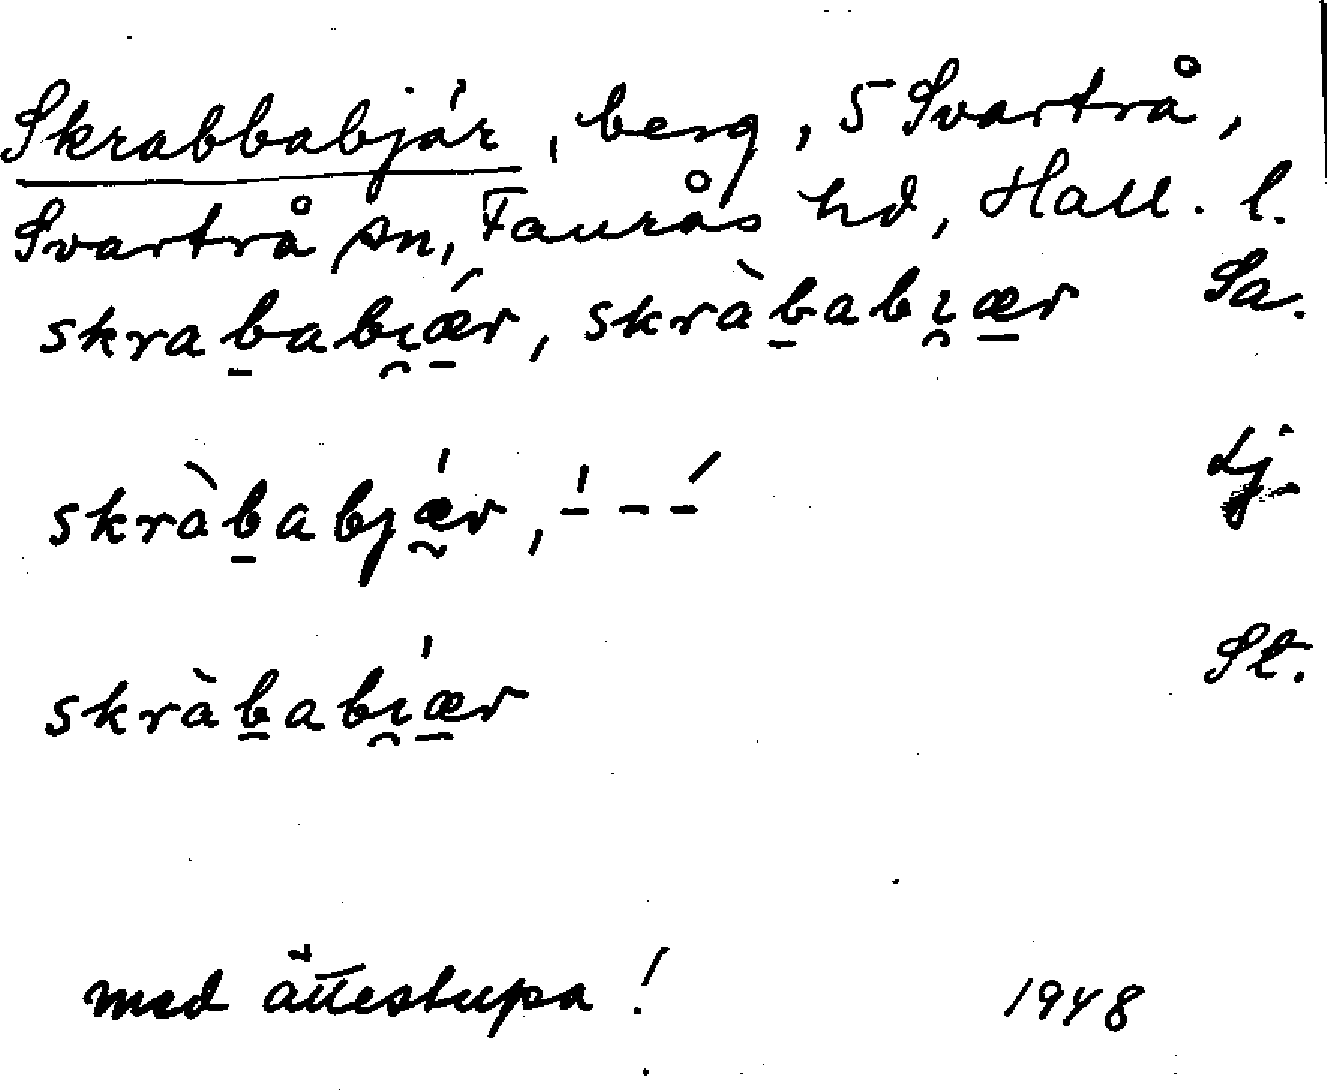 Skrabbabjár, berg, 5 Svartrå,
Svartrå sn, Faurås hd, Hall. l.
skrababi̯ǽr, skràbabi̯ær Sa.
skràbabjǽr, ́ – – ́ Lj.
skràbabi̯ǽr St.
med ättestupa! 1948